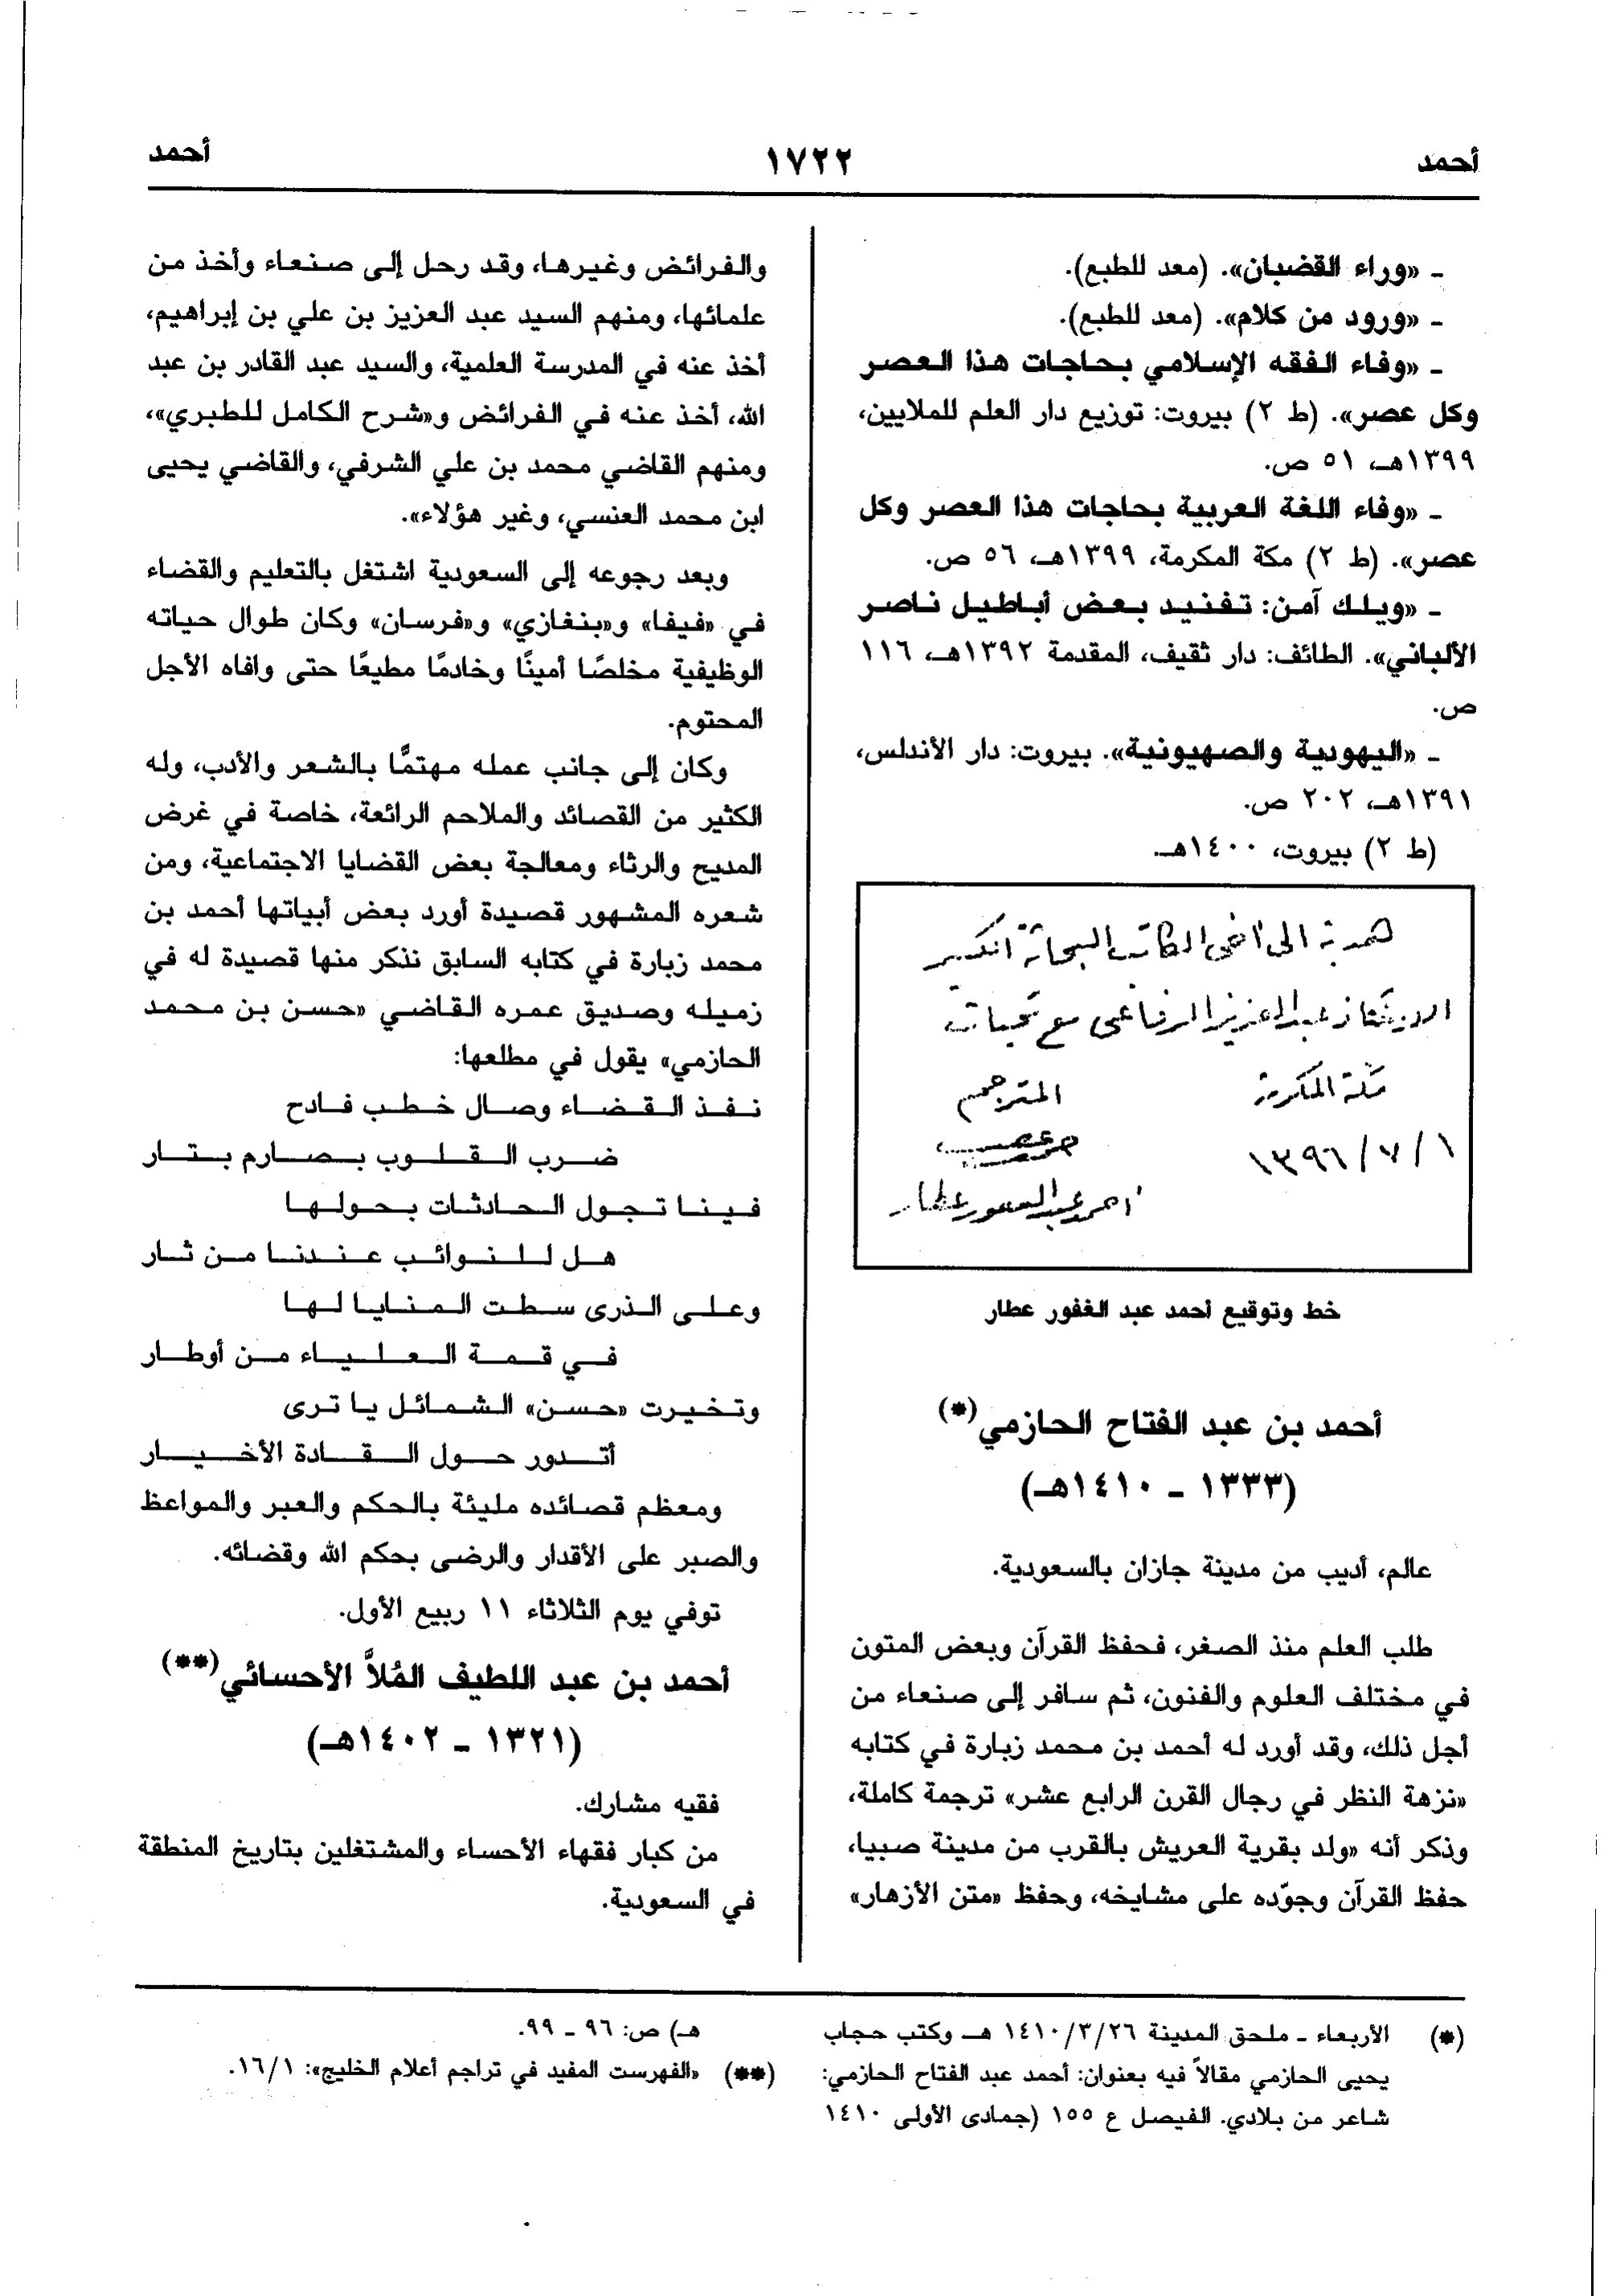 أحمد
١٧٢٢
أحمد
- «وراء القضبان». (معد للطبع).
- «ورود من كلام». (معد للطبع).
- «وفاء الفقه الإسلامي بحاجات هذا العصر
وكل عصر». (ط ٢) بيروت: توزيع دار العلم للملايين،
١٣٩٩هـ، ٥١ ص.
- «وفاء اللغة العربية بحاجات هذا العصر وكل
عصر». (ط ٢) مكة المكرمة، ١٣٩٩هـ، ٥٦ ص.
- «ويلك آمن: تفنيد بعض أباطيل ناصر
الألباني». الطائف: دار ثقيف، المقدمة ١٣٩٢هـ، ١١٦
ص.
- «اليهودية والصهيونية». بيروت: دار الأندلس،
١٣٩١هـ، ٢٠٢ ص.
(ط ٢) بيروت، ١٤٠٠هـ.
هدية الى أخي الكاتب البحاثة الكبير
الأستاذ عبد العزيز الرفاعي مع تحيات
مكة المكرمة
المترجم
١٣٩٦/٧/١
أحمد عبد الغفور عطار
خط وتوقيع أحمد عبد الغفور عطار
أحمد بن عبد الفتاح الحازمي(*)
(١٣٣٣ - ١٤١٠هـ)
عالم، أديب من مدينة جازان بالسعودية.
طلب العلم منذ الصغر، فحفظ القرآن وبعض المتون
في مختلف العلوم والفنون، ثم سافر إلى صنعاء من
أجل ذلك، وقد أورد له أحمد بن محمد زبارة في كتابه
«نزهة النظر في رجال القرن الرابع عشر» ترجمة كاملة،
وذكر أنه «ولد بقرية العريش بالقرب من مدينة صبيا،
حفظ القرآن وجوّده على مشايخه، وحفظ «متن الأزهار»
والفرائض وغيرها، وقد رحل إلى صنعاء وأخذ من
علمائها، ومنهم السيد عبد العزيز بن علي بن إبراهيم،
أخذ عنه في المدرسة العلمية، والسيد عبد القادر بن عبد
الله، أخذ عنه في الفرائض و«شرح الكامل للطبري»،
ومنهم القاضي محمد بن علي الشرفي، والقاضي يحيى
ابن محمد العنسي، وغير هؤلاء».
وبعد رجوعه إلى السعودية اشتغل بالتعليم والقضاء
في «فيفا» و«بنغازي» و«فرسان» وكان طوال حياته
الوظيفية مخلصًا أمينًا وخادمًا مطيعًا حتى وافاه الأجل
المحتوم.
وكان إلى جانب عمله مهتمًّا بالشعر والأدب، وله
الكثير من القصائد والملاحم الرائعة، خاصة في غرض
المديح والرثاء ومعالجة بعض القضايا الاجتماعية، ومن
شعره المشهور قصيدة أورد بعض أبياتها أحمد بن
محمد زبارة في كتابه السابق نذكر منها قصيدة له في
زميله وصديق عمره القاضي «حسن بن محمد
الحازمي» يقول في مطلعها:
نفذ القضاء وصال خطب فادح
ضرب القلوب بصارم بتار
فينا تجول الحادثات بحولها
هل للنوائب عندنا من ثار
وعلى الذرى سطت المنايا لها
في قمة العلياء من أوطار
وتخيرت «حسن» الشمائل يا ترى
أتدور حول القادة الأخيار
ومعظم قصائده مليئة بالحكم والعبر والمواعظ
والصبر على الأقدار والرضى بحكم الله وقضائه.
توفي يوم الثلاثاء ١١ ربيع الأول.
أحمد بن عبد اللطيف المُلاَّ الأحسائي(**)
(١٣٢١ - ١٤٠٢هـ)
فقيه مشارك.
من كبار فقهاء الأحساء والمشتغلين بتاريخ المنطقة
في السعودية.
(*) الأربعاء - ملحق المدينة ١٤١٠/٣/٢٦ هـ وكتب حجاب
يحيى الحازمي مقالاً فيه بعنوان: أحمد عبد الفتاح الحازمي:
شاعر من بلادي. الفيصل ع ١٥٥ (جمادى الأولى ١٤١٠
هـ) ص: ٩٦ - ٩٩.
(**) «الفهرست المفيد في تراجم أعلام الخليج»: ١٦/١.